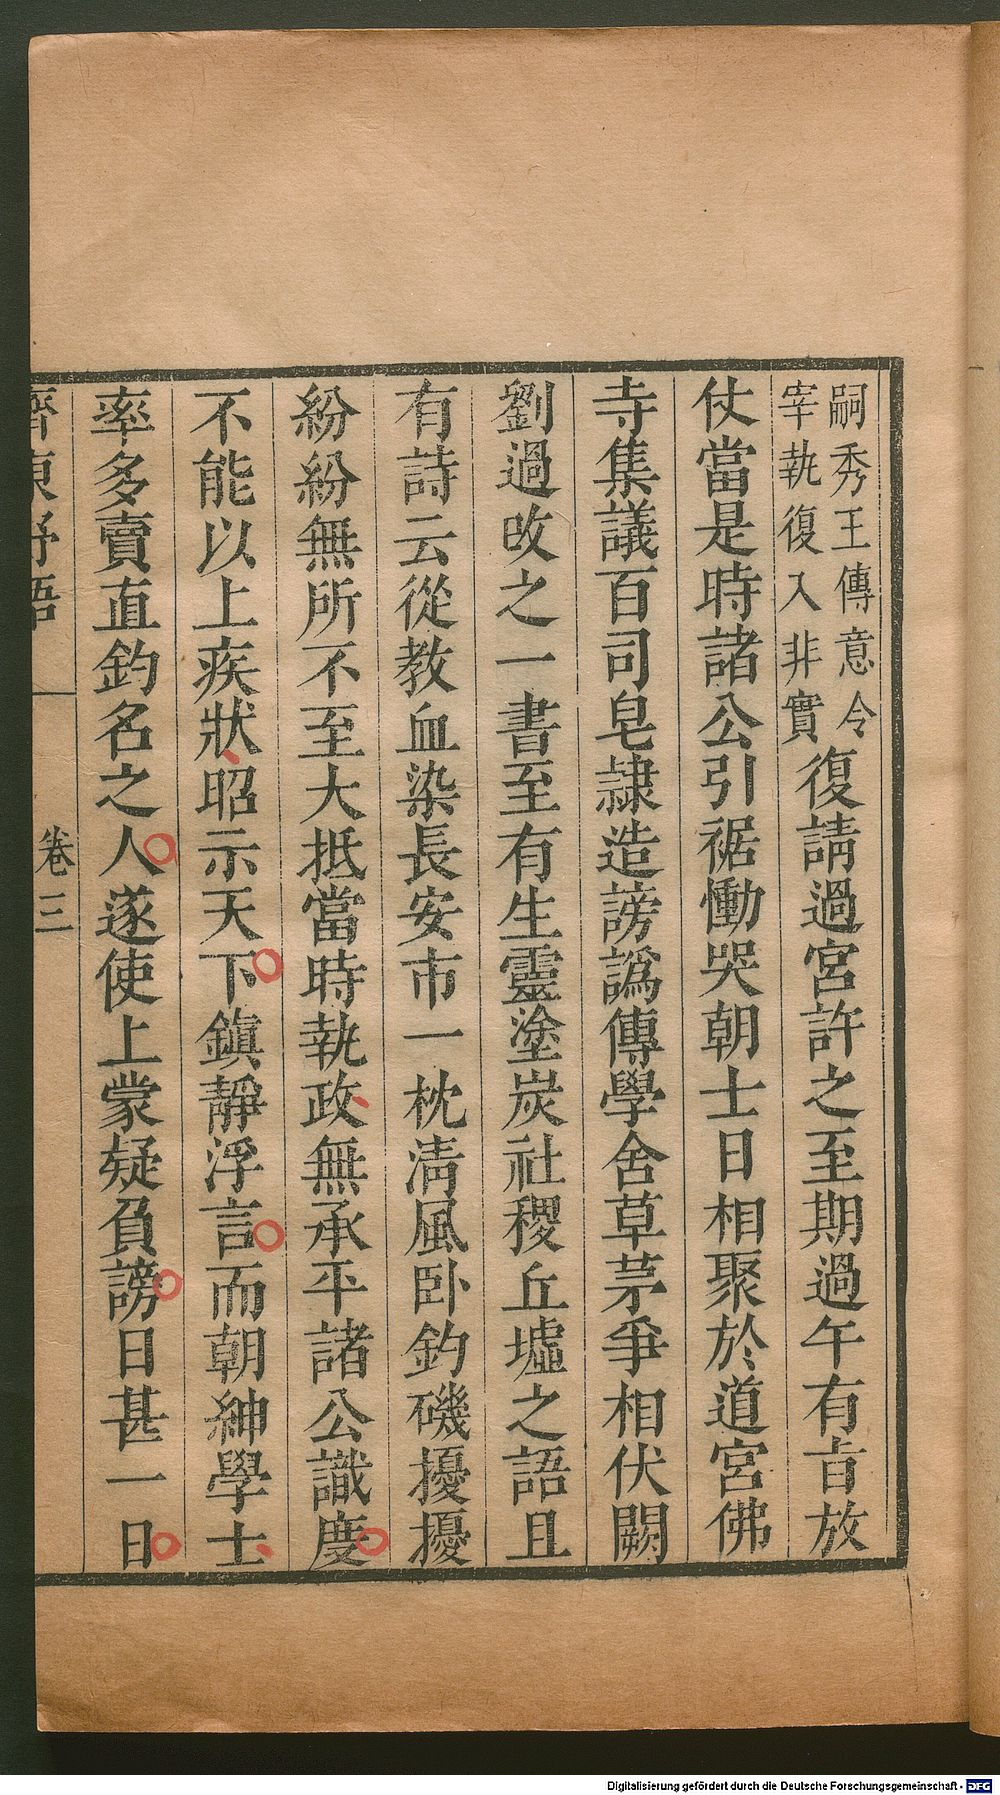 嗣秀王傳意令
宰執復入非實
復請過宮許之至期過午有旨放
仗當是時諸公引裾慟哭朝士日相聚於道宮佛
寺集議百司皂隷造謗譌傳學舍草茅爭相伏闕
劉過改之一書至有生靈塗炭社稷丘墟之語且
有詩云從教血染長安市一枕淸風卧釣磯擾擾
紛紛無所不至大抵當時執政無承平諸公識慶
不能以上疾狀昭示天下鎭靜浮言而朝紳學士
率多賣直釣名之人遂使上蒙疑負謗日甚一日
齊東野語
卷三
Digitalisierung gefördert durch die Deutsche Forschungsgemeinschaft - DFG